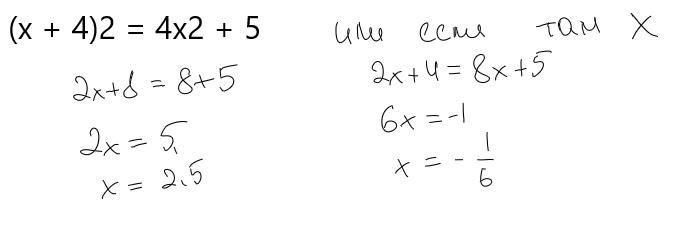 (x + 4)2 = 4x2 + 5
2x+8 = 8+5
2x = 5
x = 2,5
или если там X
2x+4 = 8x+5
6x = -1
x = - 1/6